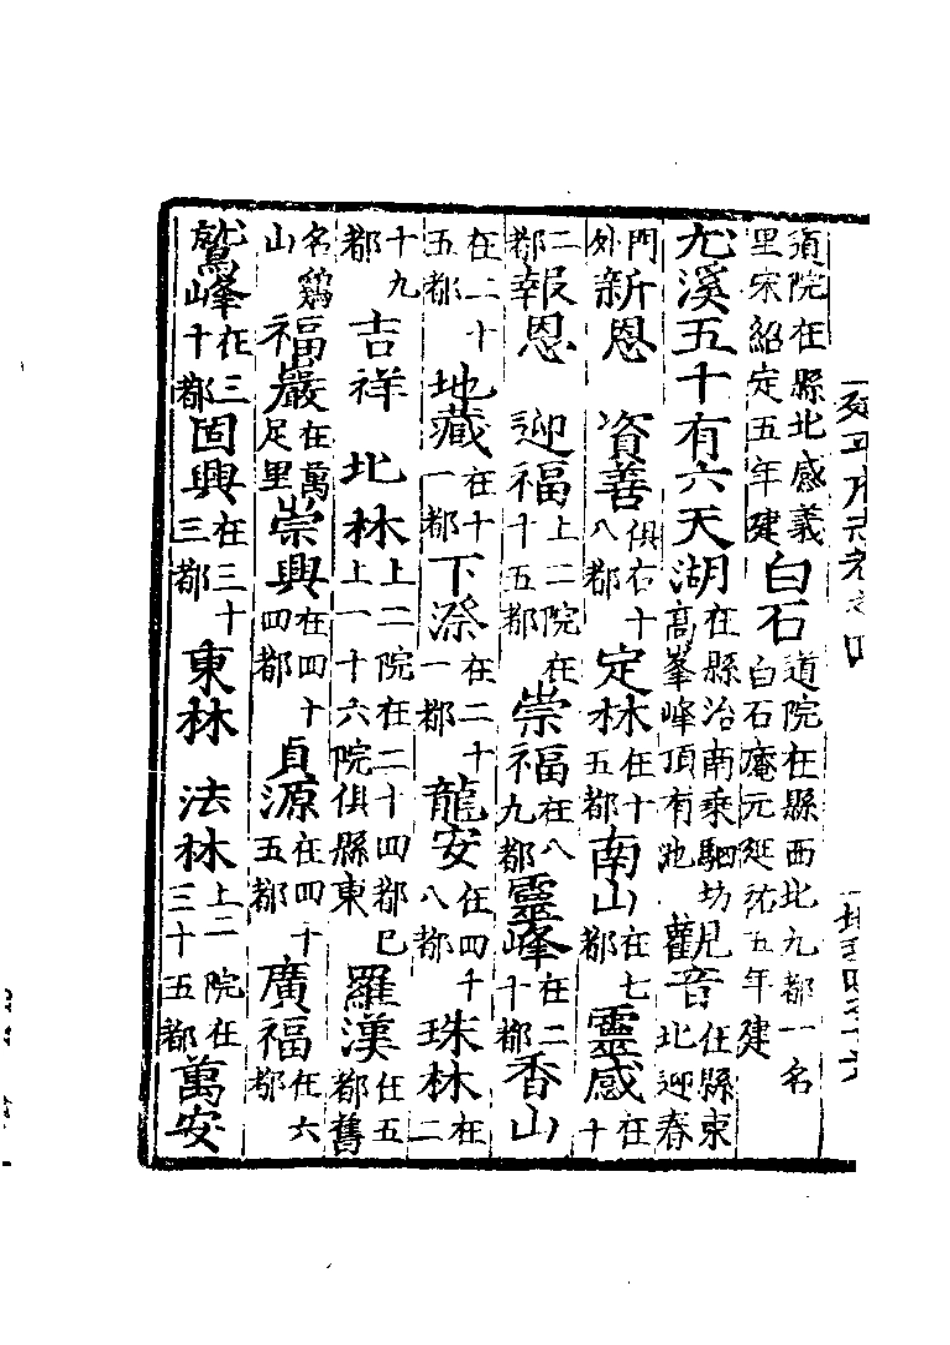 湏院在縣北感義里宋紹定五年建白石道院在縣西北九都一名白石庵元延祐五年建
尤溪五十有六天湖在縣治南乘駟坊見高峯峰頂有池觀音在縣東北迎春
門外新恩 資善俱右十八都定林在十五都南山在七都靈感在十
二都報恩 迎福上二院在十五都崇福在八九都靈峰在二十都香山
在二十五都地藏在十一都下漈在二十一都龍安在四十八都珠林在二
十九都吉祥 北林上二院在二十四都巳上一十六院俱縣東羅漢在五都舊
名鷄山福嚴在萬足里崇興在四十四都貞源在四十五都廣福在六都
鷲峰在三十都固興在三十三都東林 法林上二院在三十五都萬安